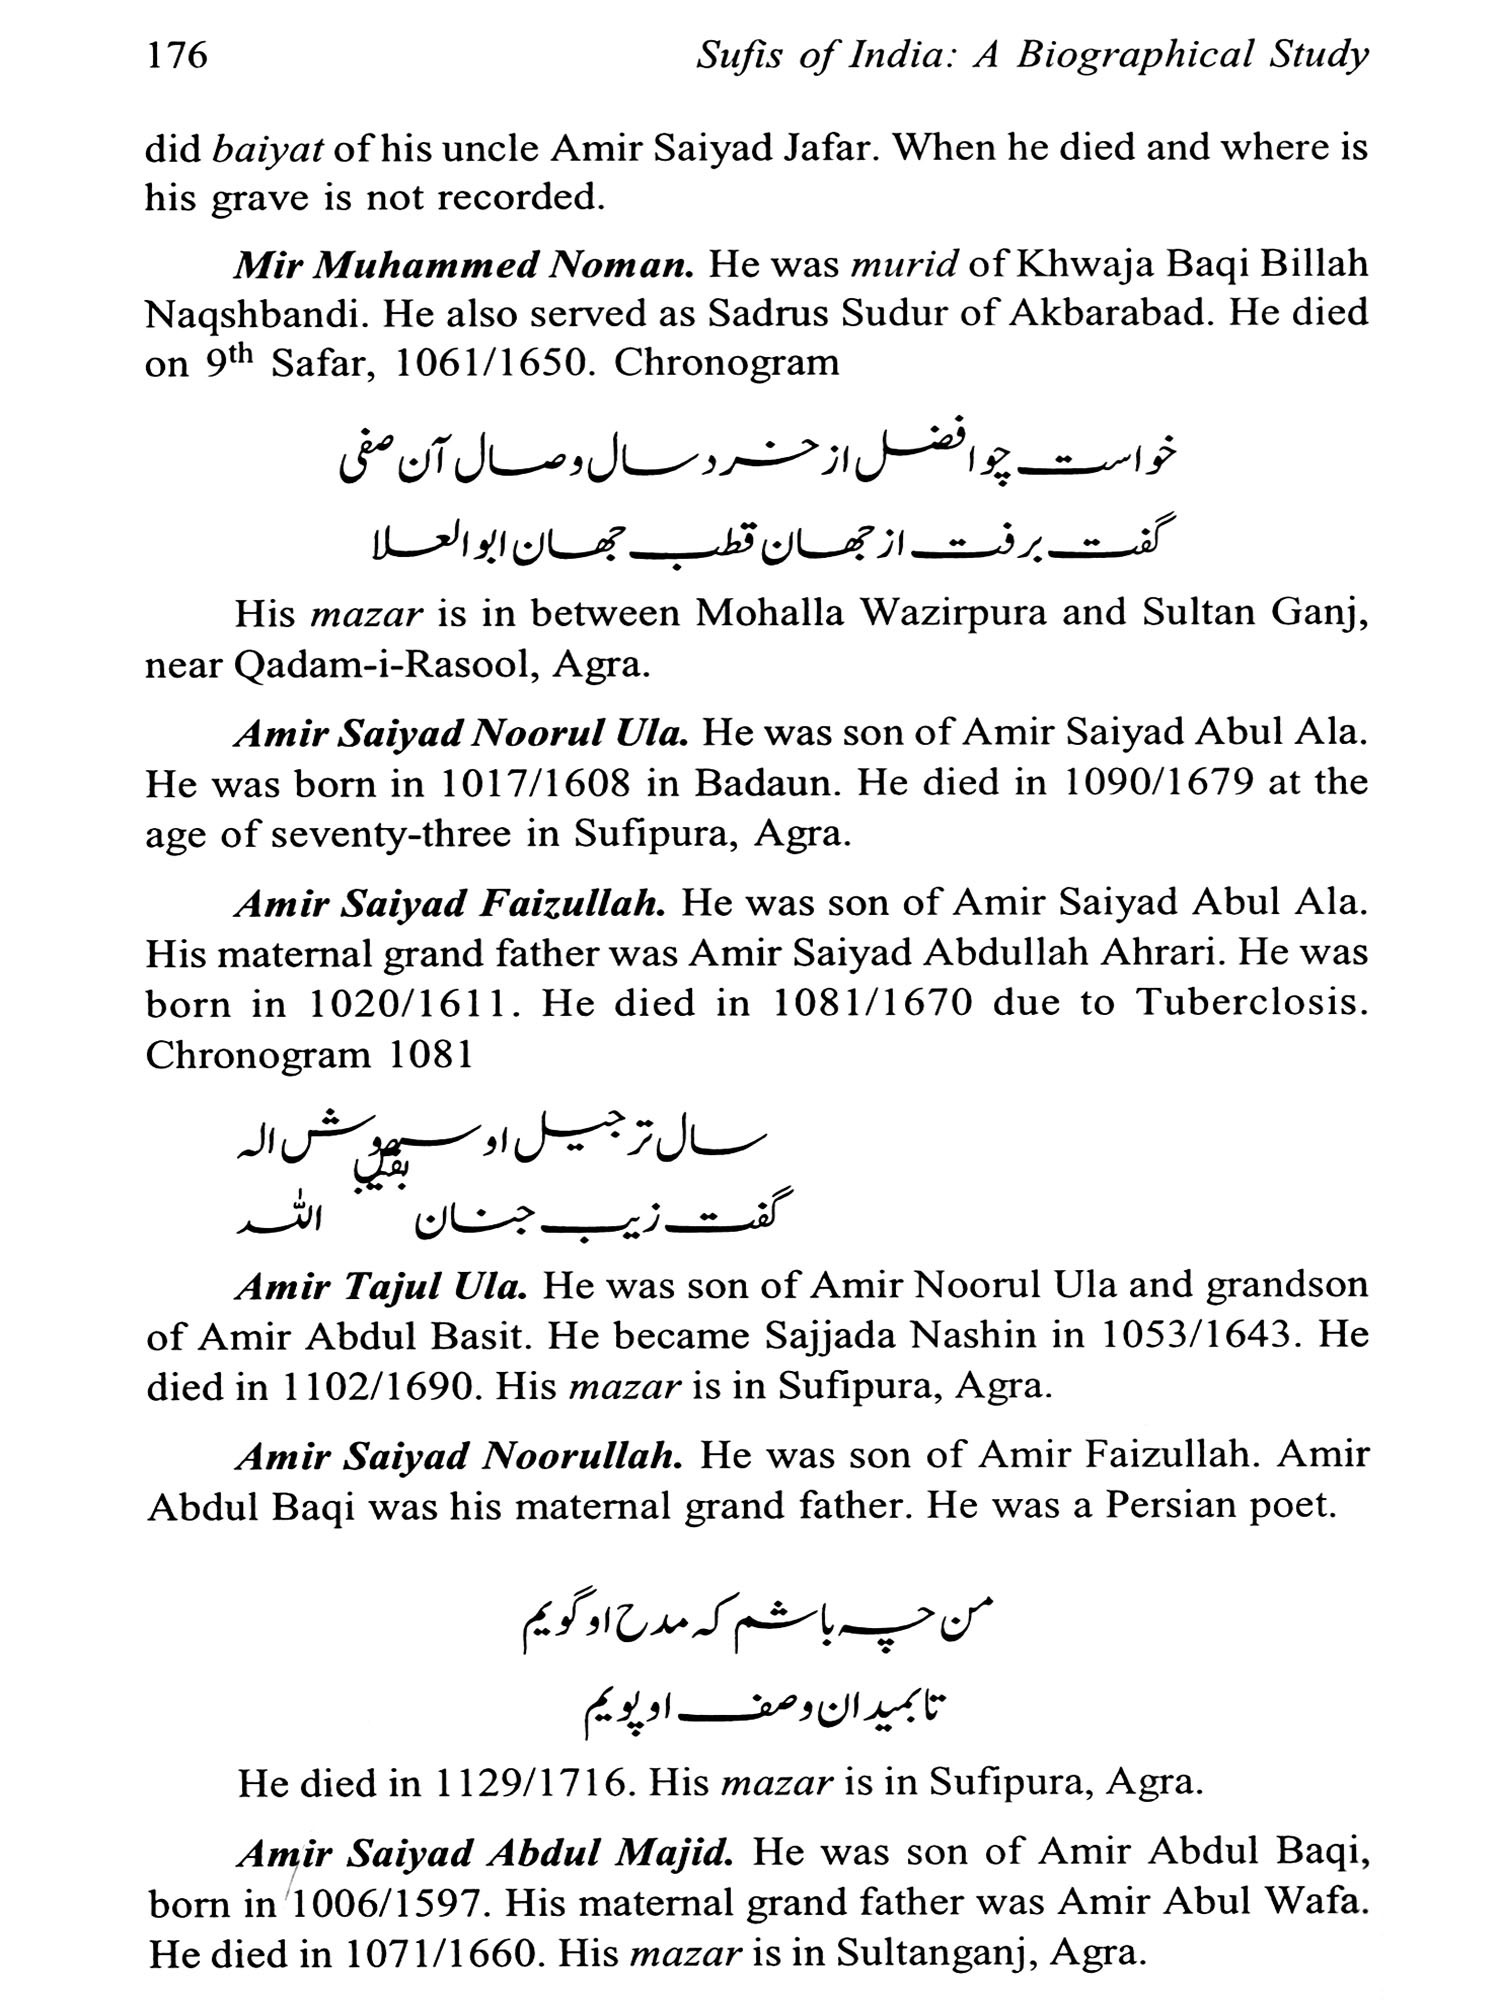 176 Sufis of India: A Biographical Study
did baiyat of his uncle Amir Saiyad Jafar. When he died and where is
his grave is not recorded.
Mir Muhammed Noman. He was murid of Khwaja Baqi Billah
Naqshbandi. He also served as Sadrus Sudur of Akbarabad. He died
on 9th Safar, 1061/1650. Chronogram
خواست چو افضل از خرد سال وصال آن صفی
گفت برفت از جهان قطب جهان ابوالعلا
His mazar is in between Mohalla Wazirpura and Sultan Ganj,
near Qadam-i-Rasool, Agra.
Amir Saiyad Noorul Ula. He was son of Amir Saiyad Abul Ala.
He was born in 1017/1608 in Badaun. He died in 1090/1679 at the
age of seventy-three in Sufipura, Agra.
Amir Saiyad Faizullah. He was son of Amir Saiyad Abul Ala.
His maternal grand father was Amir Saiyad Abdullah Ahrari. He was
born in 1020/1611. He died in 1081/1670 due to Tuberclosis.
Chronogram 1081
سال ترجیل او سروش الہ
گفت زیب جنان اللہ
Amir Tajul Ula. He was son of Amir Noorul Ula and grandson
of Amir Abdul Basit. He became Sajjada Nashin in 1053/1643. He
died in 1102/1690. His mazar is in Sufipura, Agra.
Amir Saiyad Noorullah. He was son of Amir Faizullah. Amir
Abdul Baqi was his maternal grand father. He was a Persian poet.
من چہ باشم کہ مدح او گویم
تا بمیدان وصف او پویم
He died in 1129/1716. His mazar is in Sufipura, Agra.
Amir Saiyad Abdul Majid. He was son of Amir Abdul Baqi,
born in 1006/1597. His maternal grand father was Amir Abul Wafa.
He died in 1071/1660. His mazar is in Sultanganj, Agra.